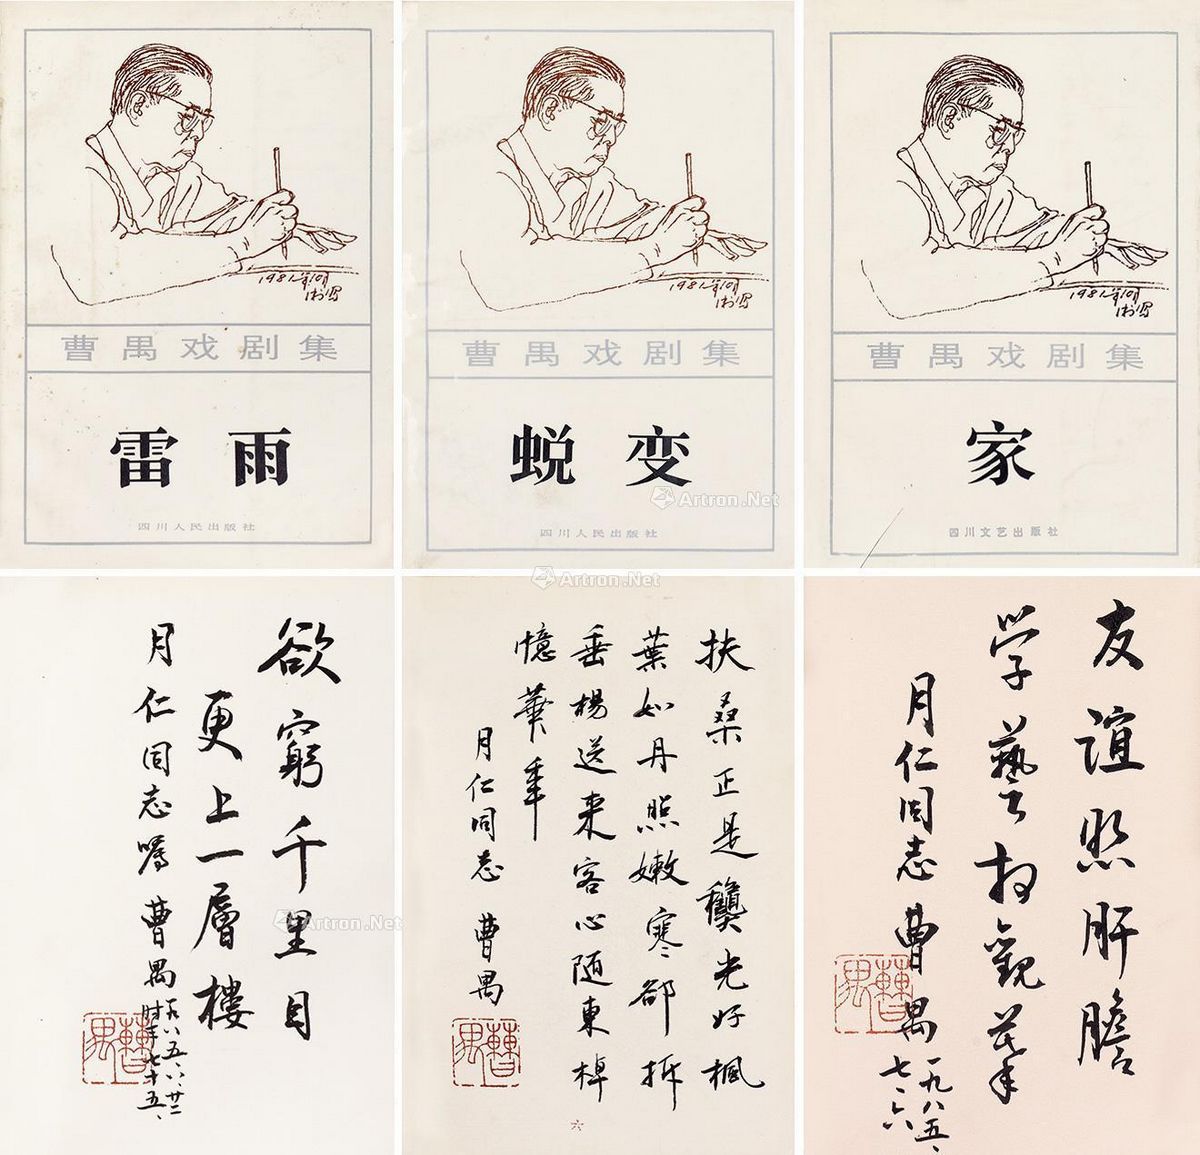 1981年10月
曹禺戏剧集
雷雨
四川人民出版社
1981年10月
曹禺戏剧集
蜕变
四川人民出版社
1981年10月
曹禺戏剧集
家
四川文艺出版社
Artron.Net
Artron.Net
Artron.Net
欲窮千里目
更上一層樓
月仁同志嘱 曹禺
时年七十五、
扶桑正是龝光好楓
葉如丹照嫩寒卻折
垂楊送来客心随東棹
憶華年
月仁同志 曹禺
六
友誼照肝膽
学藝相觀摹
月仁同志 曹禺
一九八五、
七、六